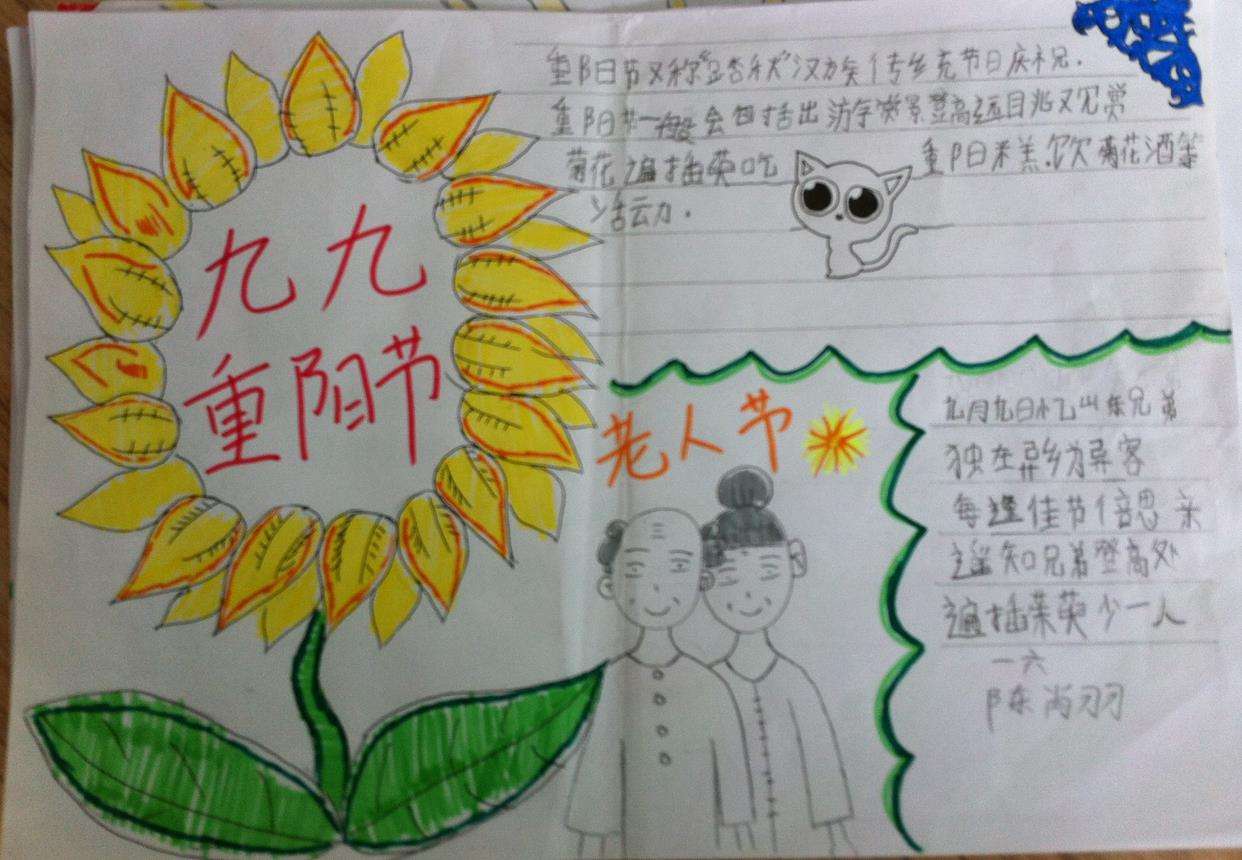 九九
重阳节
重阳节又称"踏秋"汉族传统节日庆祝.
重阳节一般会包括出游赏景登高远目兆又见赏
菊花遍插英吃 重阳米羔.饮菊花酒等
活云力.
老人节
九月九日忆山东兄弟
独在异乡为异客
每逢佳节倍思亲
遥知兄弟登高处
遍插茱萸少一人
一六
陈尚羽